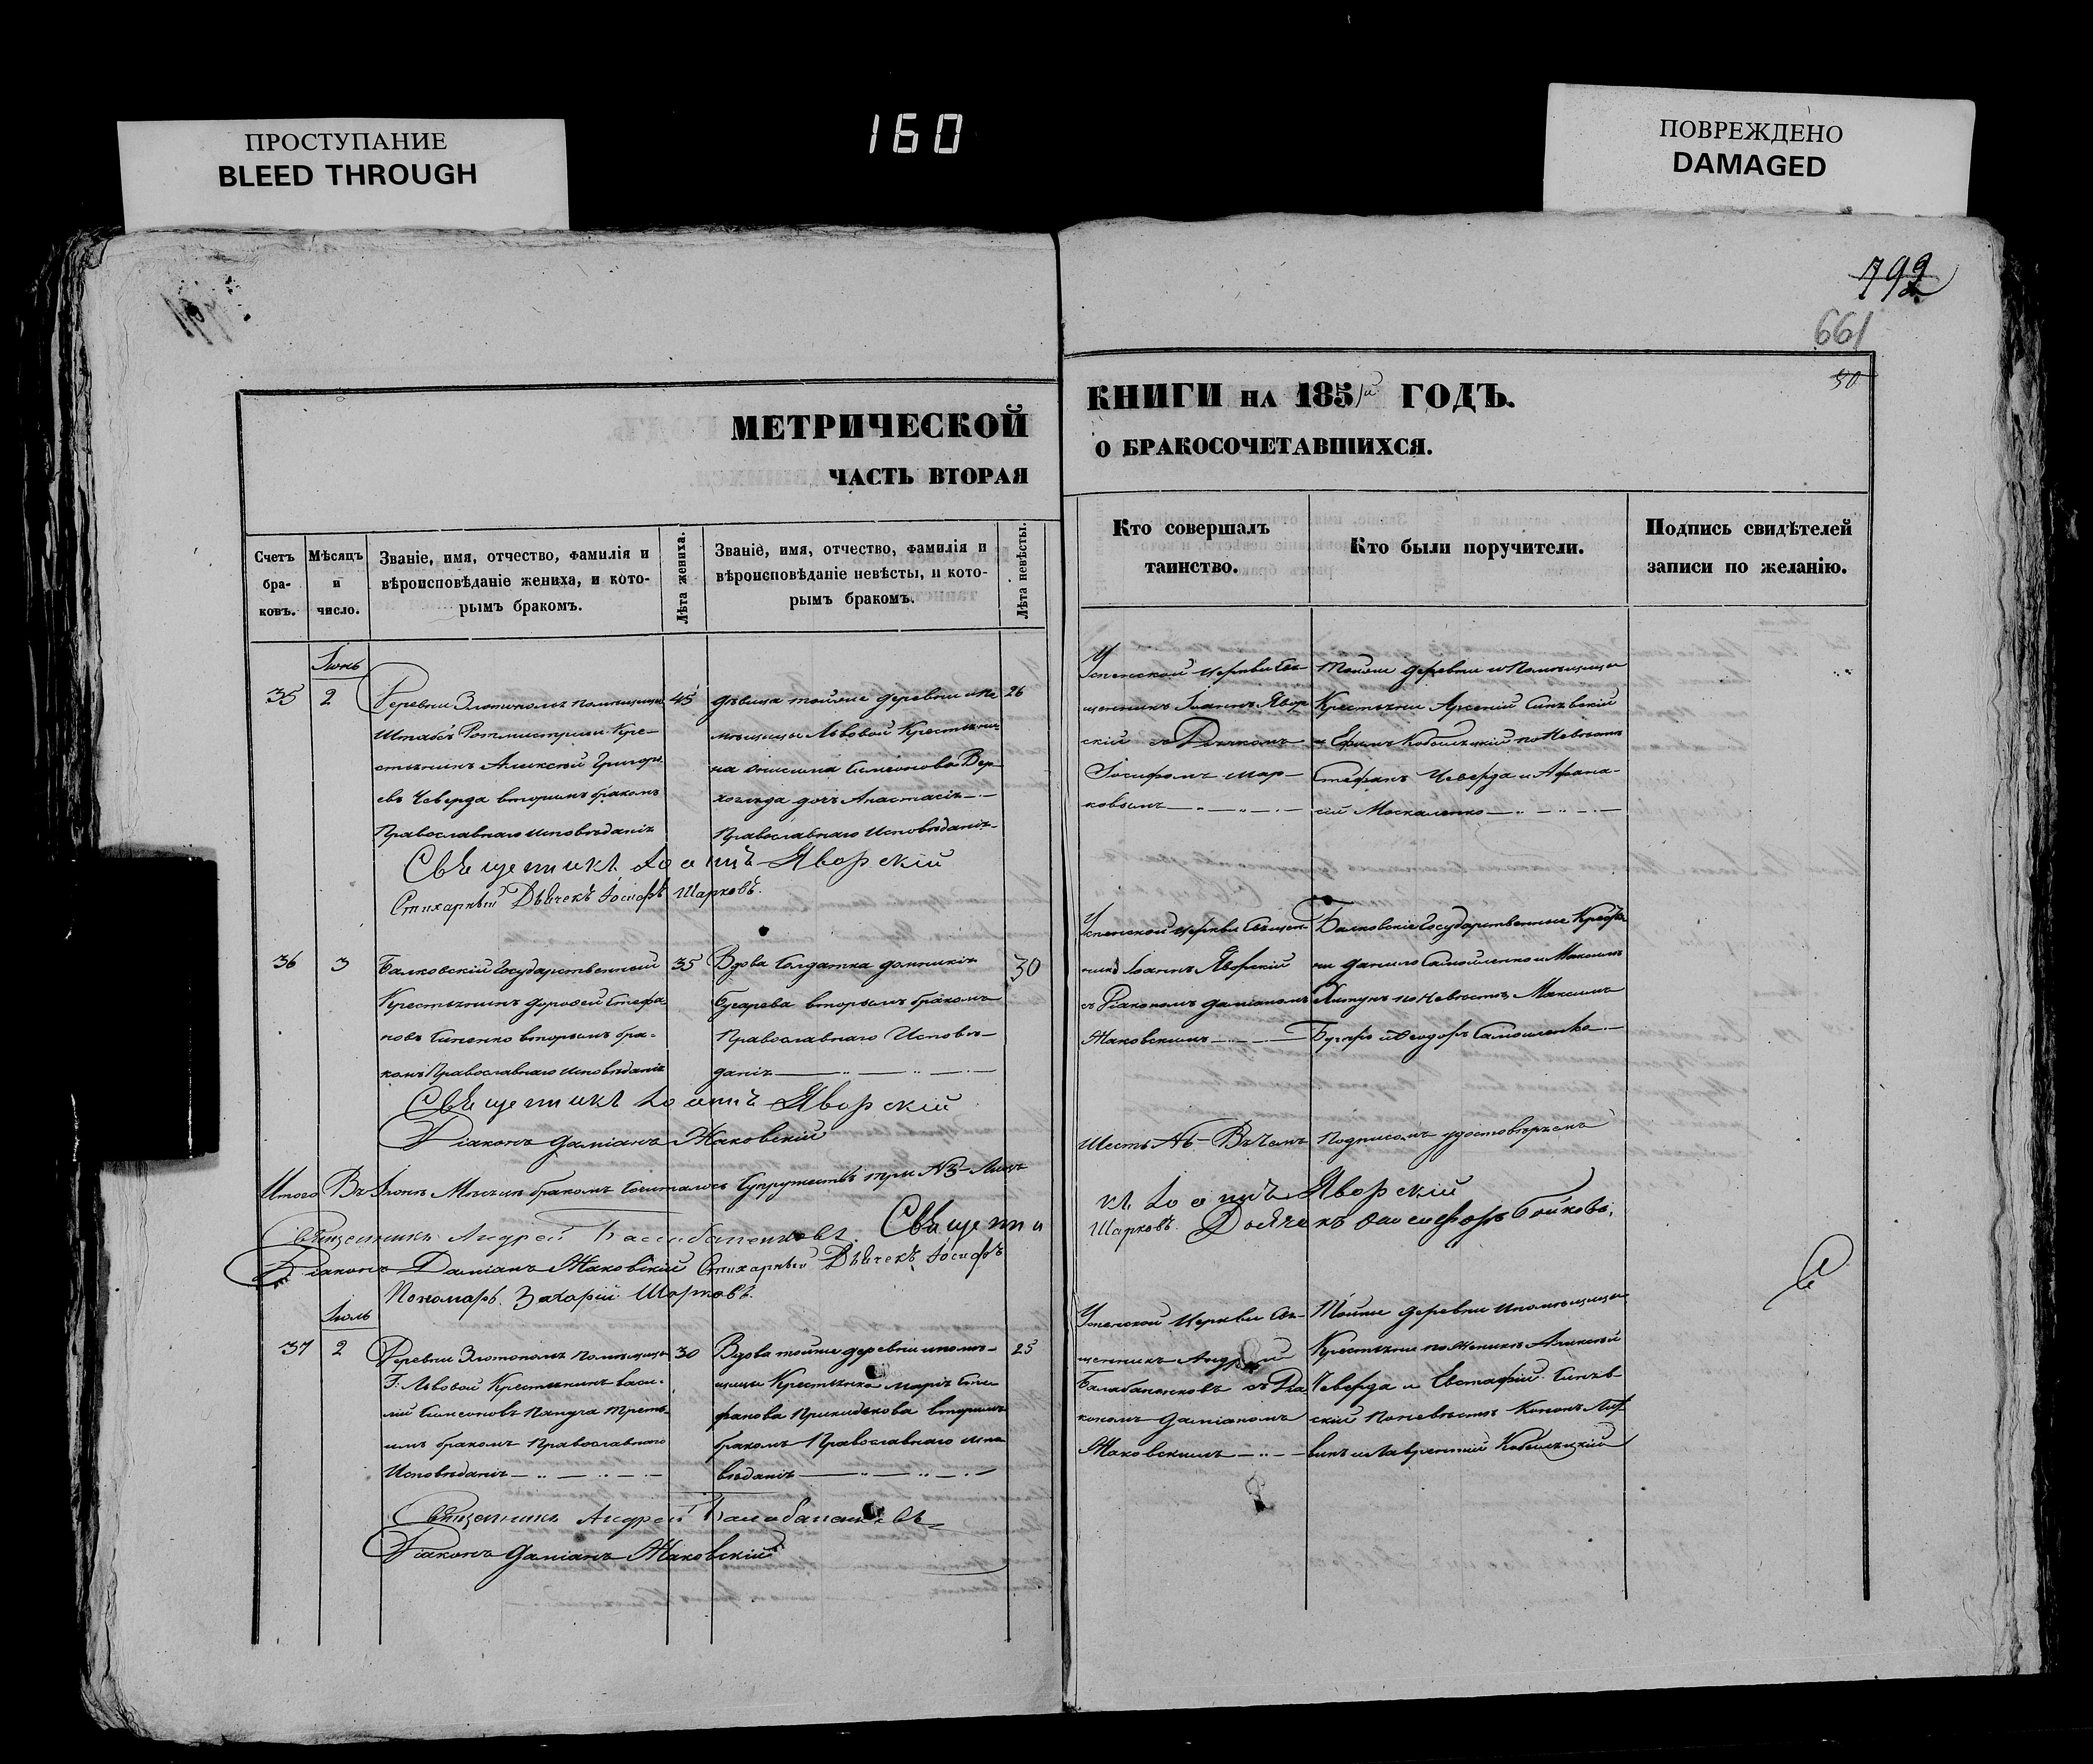 ПРОСТУПАНИЕ
BLEED THROUGH
160
ПОВРЕЖДЕНО
DAMAGED
792
661
50
МЕТРИЧЕСКОЙ
ЧАСТЬ ВТОРАЯ
КНИГИ НА 1851й ГОДЪ.
О БРАКОСОЧЕТАВШИХСЯ.
Счетъ бра-ковъ.
Мѣсяцъ и число.
Званіе, имя, отчество, фамилія и
вѣроисповѣданіе жениха, и кото-
рымъ бракомъ.
Лѣта жениха.
Званіе, имя, отчество, фамилія и
вѣроисповѣданіе невѣсты, и кото-
рымъ бракомъ.
Лѣта невѣсты.
Кто совершалъ
таинство.
Кто были поручители.
Подпись свидѣтелей
записи по желанію.
Іюнь
35
2
Деревни Златополъ помѣщицы
Штабсъ Ротмистрши Кре-
стьянинъ Алексѣй Григорь-
евъ Чеверда вторымъ бракомъ
Православнаго исповѣданія
45
дѣвица тойже деревни и по
мѣщицы Львовой Крестьяни-
на Симеонова Вер-
хогляда дочь Анастасія
Православнаго Исповѣданія
26
Успенской церкви Свя-
щенникъ Іоаннъ Явор
скій съ Дьячкомъ
Іосифомъ Шар-
ковымъ
Тойже деревни и Помѣщицы
Крестьяне Арсеній Синѣвскій
и Ефимъ Кобылѣцкій по Невѣстѣ
Стефанъ Чеверда и Афана-
сій Москаленко
Священникъ Іоаннъ Яворскій
Стихарный Дьячекъ Іосифъ Шарковъ.
36
3
Балковскій Государственный
Крестьянинъ Дорофей Стефа
новъ Синенко вторымъ бра-
комъ Православнаго исповѣданія
35
Вдова Солдатка Домникія
Бугарева вторымъ бракомъ
Православнаго Исповѣ-
данія
30
Успенской церкви Священ-
никъ Іоаннъ Яворскій
съ Діакономъ Даміаномъ
Маковскимъ
Балковскіе Государственные Крестья
не Данило Самойленко и Максимъ
по Невѣстѣ Максимъ
Бугаръ и Феодоръ Самойленко
Священникъ Іоаннъ Яворскій
Діаконъ Даміанъ Маковскій
Итого Въ Іюнѣ Мѣсяцѣ бракомъ Сочеталось Супружествъ три №3 Лицъ
Шесть №6 Въ Чемъ Подписомъ удостовѣряемъ
Священникъ Андрей Балабаненковъ. Священни
къ Іоаннъ Яворскій
Діаконъ Даміанъ Маковскій Стихарный Дьячекъ Іосифъ
Шарковъ. Дьячекъ Бойковъ.
Пономарь Захарій Шарковъ.
Іюль
37
2
Деревни Златополъ помѣщицы
Г. Львовой Крестьянинъ Васи-
лій Симеоновъ Папуча треть-
имъ бракомъ Православнаго
Исповѣданія
30
Вдова тойже деревни и помѣ-
щицы Крестьянка Марія Сте
фанова вторымъ
бракомъ Православнаго испо
вѣданія
25
Успенской Церкви Свя-
щенникъ Андрей
Балабаненковъ съ Діа
кономъ Даміаномъ
Маковскимъ
Тойже деревни и помѣщицы
Крестьяне по Женихѣ Алексѣй
Чеверда и Евстафій Синѣв
скій По невѣстѣ Кононъ Лит
винъ и Лаврентій Кобылѣцкій
Священникъ Андрей Балабаненковъ
Діаконъ Даміанъ Маковскій